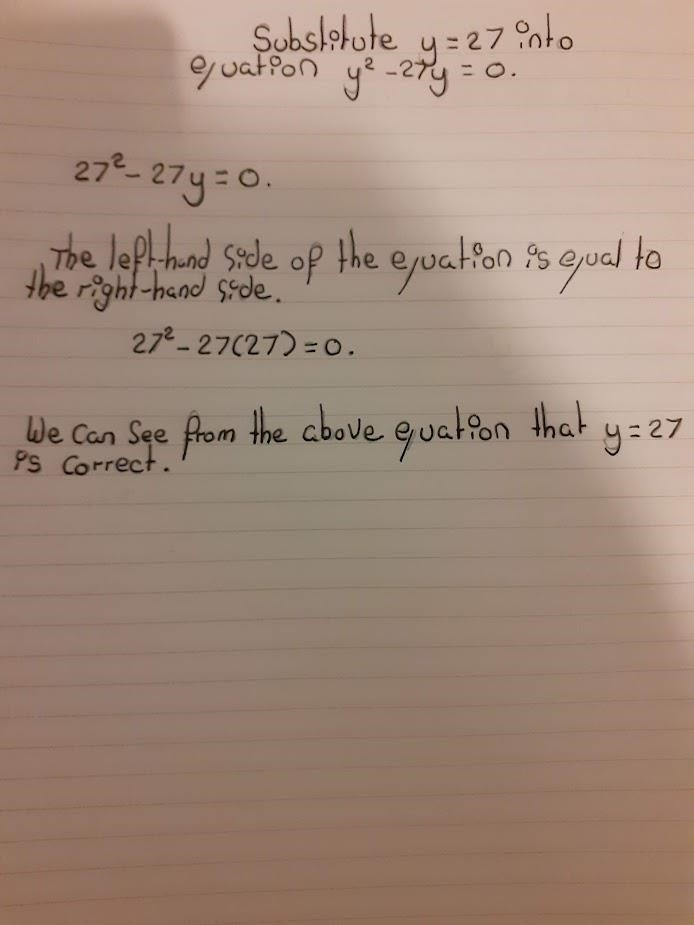 Substitute y = 27 into
equation y² - 27y = 0.
27² - 27y = 0.
The left-hand side of the equation is equal to
the right-hand side.
27² - 27(27) = 0.
We can see from the above equation that y = 27
is correct.